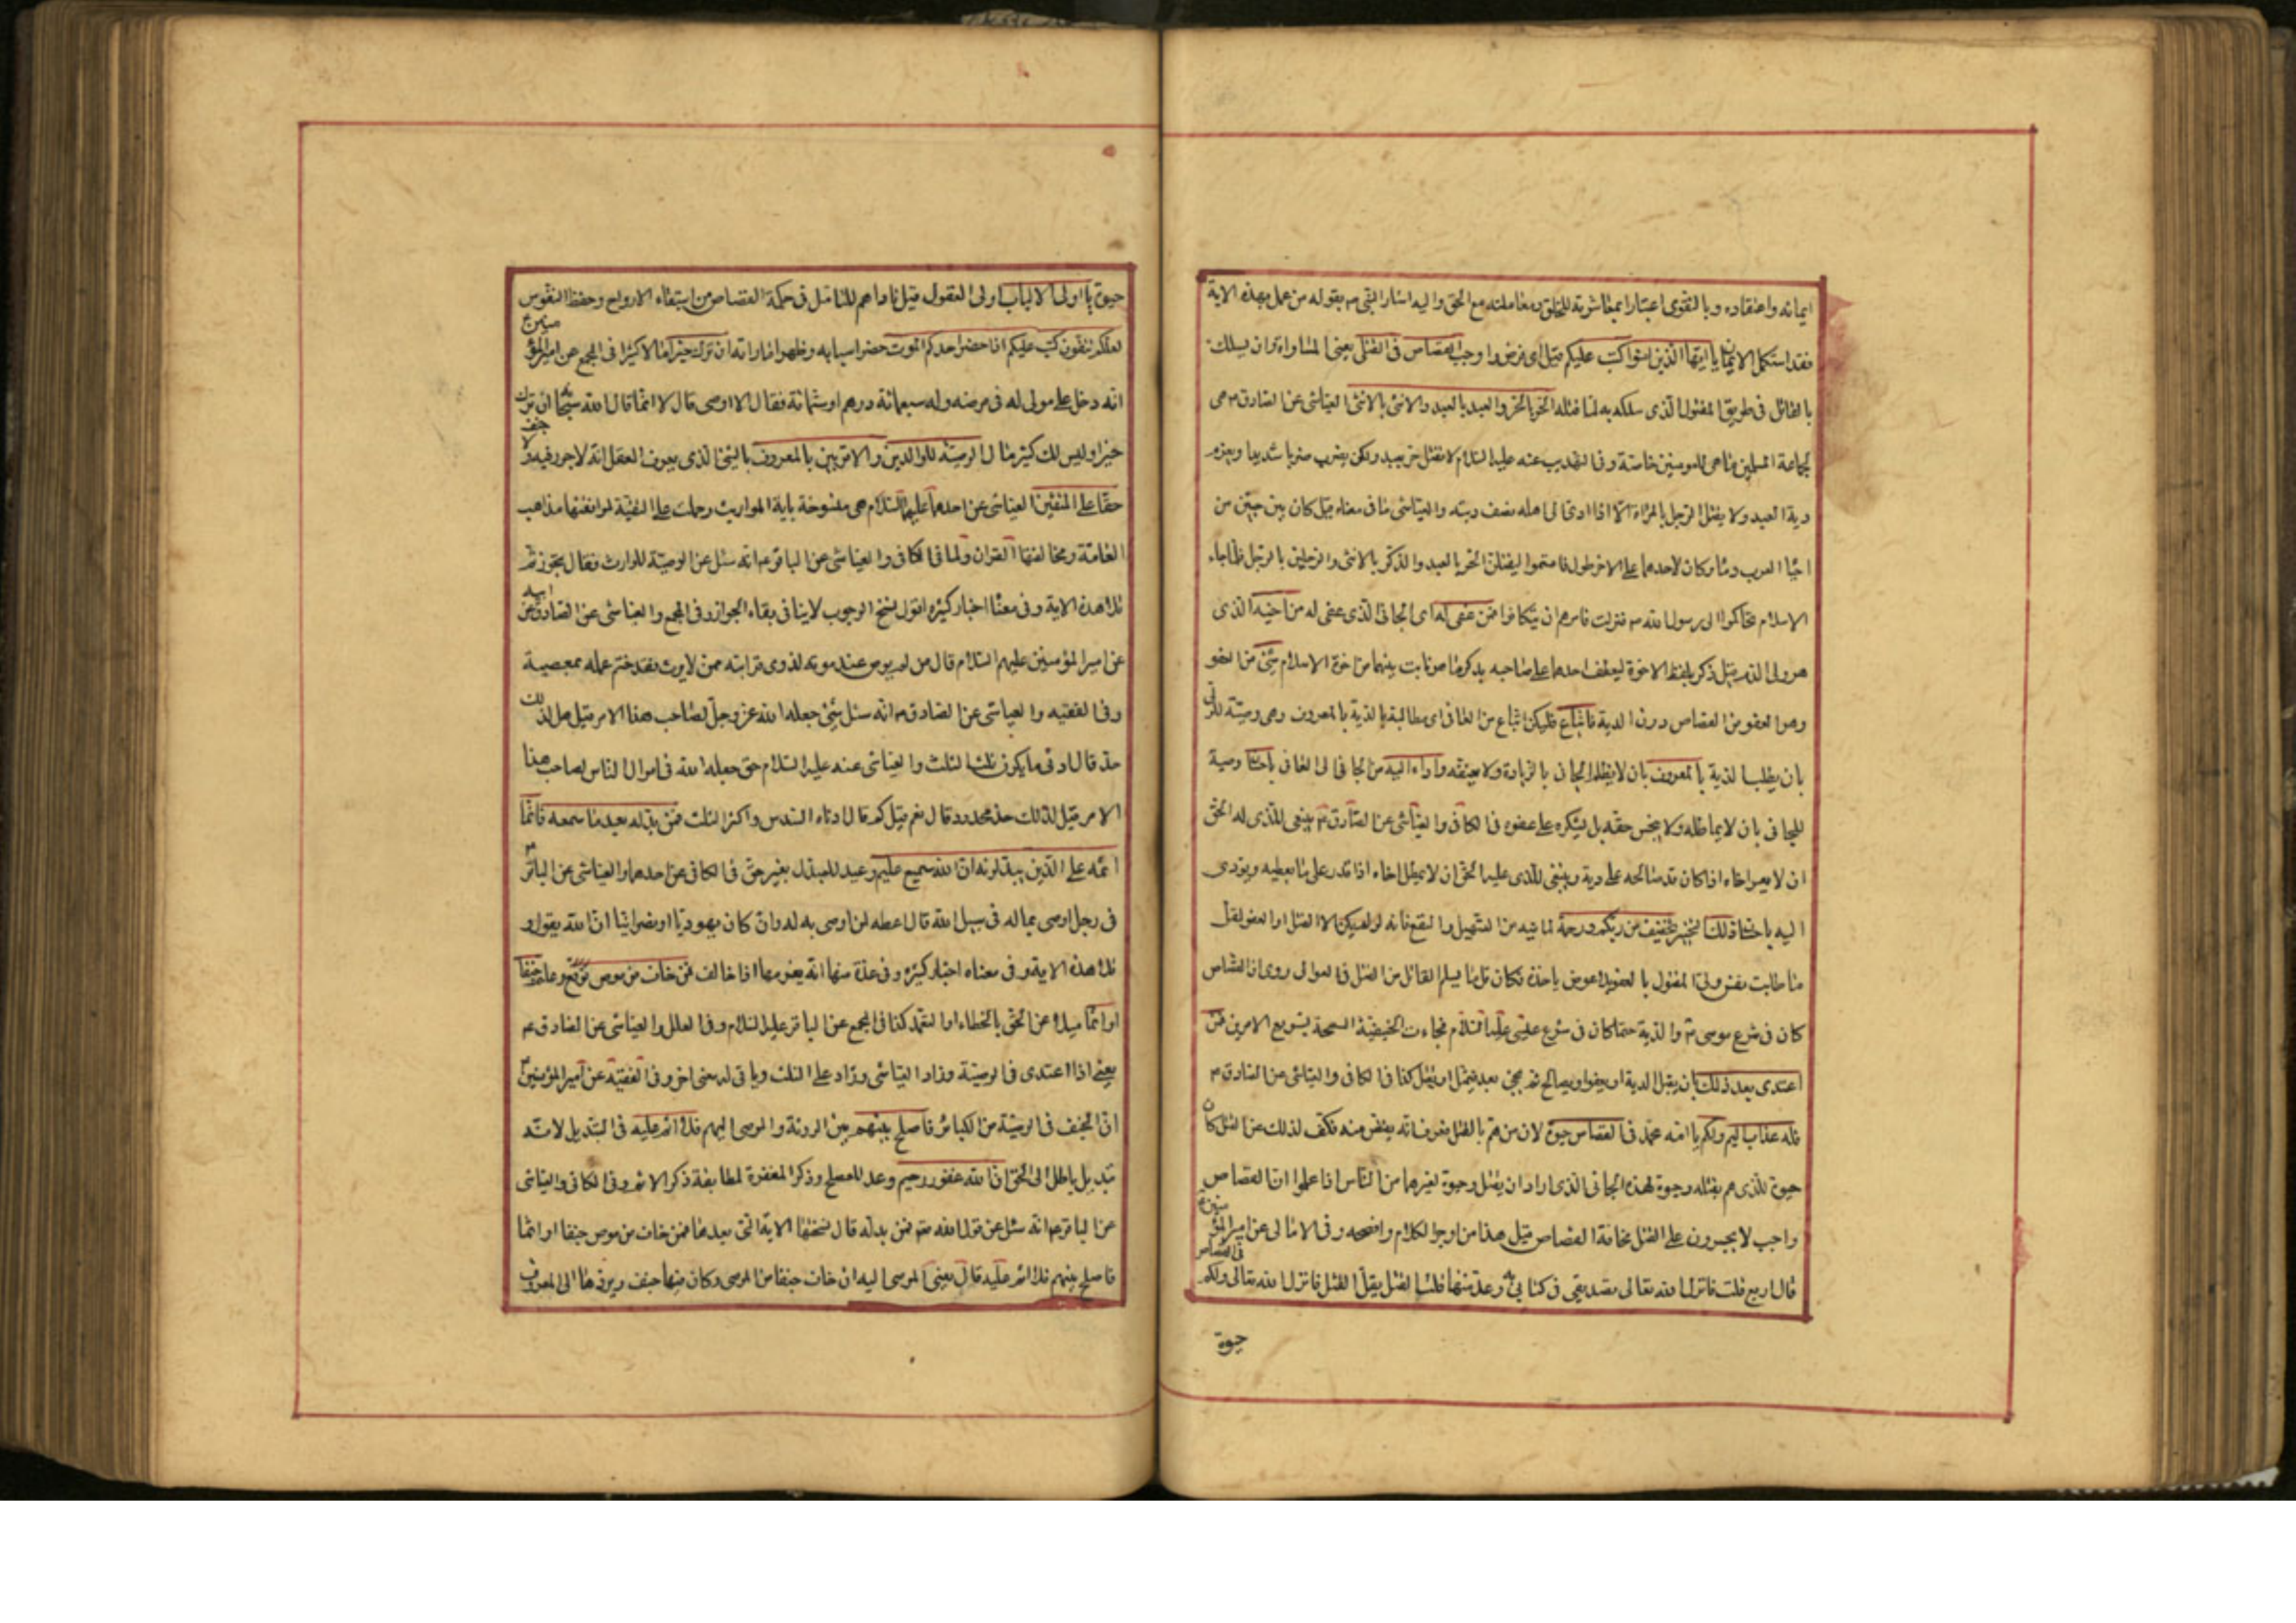 ايمانه واعتقاده وبالتقوى اعتبارا بمعاشرته للخلق ومعاملته مع الحق واليه اشار النبي ص بقوله من عمل بهذه الاية
فقد استكمل الايمان يا ايها الذين امنوا كتب عليكم قيل اى فرض واوجب القصاص فى القتلى يعنى المساواة وان يسلك
بالقاتل فى طريق المقتول الذى سلكه به لما قتله الحر بالحر والعبد بالعبد والانثى بالانثى العياشى عن الصادق م هى
لجماعة المسلمين ما هى للمومنين خاصة وفى التهذيب عنه عليه السلام لا يقتل حر بعبد ولكن يضرب ضربا شديدا ويغرم
دية العبد ولا يقتل الرجل بالمراة الا اذا ادى الى اهله نصف ديته والعياشى ما فى معناه قيل كان بين حيين من
احيا العرب دماء وكان لاحدهما على الاخر طول فاقسموا ليقتلن الحر بالعبد والذكر بالانثى والرجلين بالرجل فلما جاء
الاسلام تحاكموا الى رسول الله ص فنزلت فامرهم ان يتكافوا فمن عفى له اى الجانى الذى عفى له من اخيه الذى
هو ولى الدم قيل ذكر بلفظ الاخوة ليعطف احدهما على صاحبه بذكر ما هو ثابت بينهما من اخوة الاسلام شئ من العفو
وهو العفو من القصاص دون الدية فاتباع فليكن اتباع من العافى اى مطالبة بالدية بالمعروف وهى وصية للولى
بان يطلب الدية بالمعروف بان لا يظلم الجانى بالزيادة ولا يعنفه واداء اليه من الجانى الى العافى باحسان وصية
للجانى بان لا يماطله ولا يبخس حقه بل يشكره على عفوه فى الكافى والعياشى عن الصادق م ينبغى للذى له الحق
ان لا يعسر اخاه اذا كان قد صالحه على دية وينبغى للذى عليه الحق ان لا يمطل اخاه اذا قدر على ما يعطيه ويؤدى
اليه باحسان ذلك التخيير تخفيف من ربكم ورحمة لما فيه من التسهيل والنفع فانه لو لم يكن الا القتل او العفو لقل
ما طابت نفس ولى المقتول بالعفو بلا عوض ياخذه فكان قل ما يسلم القاتل من القتل فى العوالى روى ان القصاص
كان فى شرع موسى م والدية حتما كان فى شرع عيسى عليه السلام فجاءت الحنيفية السمحة بتسويغ الامرين فمن
اعتدى بعد ذلك بان يقبل الدية او يعفوا ويصالح ثم يجئ بعد فيمثل او يقتل كذا فى الكافى والعياشى عن الصادق م
فله عذاب اليم ولكم يا امة محمد فى القصاص حيوة لان من هم بالقتل يعرف انه يقتص منه فكف لذلك عن القتل كان
حيوة للذى هم بقتله وحيوة لهذا الجانى الذى اراد ان يقتل وحيوة لغيرهما من الناس اذا علموا ان القصاص
واجب لا يجسرون على القتل مخافة القصاص قيل هذا من اوجز الكلام وافصحه وفى الامالى عن امير المؤمنين ع
قال اربع قلت فانزل الله تعالى تصديقى فى كتابه وعد منها قلت القتل يقل القتل فانزل الله تعالى ولكم فى القصاص
حيوة
حيوة يا اولى الالباب اولى العقول قيل ناداهم للتامل فى حكمة القصاص من استبقاء الارواح وحفظ النفوس
لعلكم تتقون كتب عليكم اذا حضر احدكم الموت حضر اسبابه وظهر اماراته ان ترك خيرا مالا كثيرا فى المجمع عن امير المؤمنين ع
انه دخل على مولى له فى مرضه وله سبعمائة درهم او ستمائة فقال الا اوصى قال لا انما قال الله سبحانه ان ترك
خيرا وليس لك كثير مال الوصية للوالدين والاقربين بالمعروف بالشئ الذى يعرف العقل انه لا جور فيه ولا جنف
حقا على المتقين العياشى عن احدهما عليهما السلام هى منسوخة باية المواريث وحملت على التقية لموافقتها مذاهب
العامة ومخالفتها القران ولما فى الكافى والعياشى عن الباقر م انه سئل عن الوصية للوارث فقال يجوز ثم
تلا هذه الاية وفى معنا اخبار كثيره اقول نسخ الوجوب لا ينافى بقاء الجواز وفى المجمع والعياشى عن الصادق عن ابيه
عن امير المؤمنين عليهم السلام قال من لم يوص عند موته لذوى قرابته ممن لا يرث فقد ختم عمله بمعصية
وفى الفقيه والعياشى عن الصادق م انه سئل شئ جعله الله عز وجل لصاحب هذا الامر قيل هل لذلك
حد قال ادنى ما يكون ثلث الثلث والعياشى عنه عليه السلام حق جعله الله فى اموال الناس لصاحب هذا
الامر قيل لذلك حد محدود قال نعم قيل كم قال ادناه السدس واكثر الثلث فمن بدله بعد ما سمعه فانما
اثمه على الذين يبدلونه ان الله سميع عليم وعيد للمبدل بغير حق فى الكافى عن احدهما والعياشى عن الباقر م
فى رجل اوصى بماله فى سبيل الله قال اعطه لمن اوصى به له وان كان يهوديا او نصرانيا ان الله يقول و
تلا هذه الاية وفى معناه اخبار كثيره وفى عدة منها انه يغرمها اذا خالف فمن خاف من موص توقع وعلم جنفا
او اثما ميلا عن الحق بالخطاء او التعمد كذا فى المجمع عن الباقر عليه السلام وفى العلل والعياشى عن الصادق م
يعنى اذا اعتدى فى الوصية وزاد العياشى وزاد على الثلث وياتى له معنى اخر وفى الفقيه عن امير المؤمنين م
ان الجنف فى الوصية من الكبائر فاصلح بينهم بين الورثة والموصى اليهم فلا اثم عليه فى التبديل لانه
تبديل باطل الى الحق ان الله غفور رحيم وعد للمصلح وذكر المغفرة لمطابقة ذكر الاثم وفى الكافى والعياشى
عن الباقر م انه سئل عن قول الله تم فمن بدله قال نسختها الاية التى بعدها فمن خاف من موص جنفا او اثما
فاصلح بينهم فلا اثم عليه قال يعنى الموصى اليه ان خاف جنفا من الموصى وكان فيها جنف ويرد ها الى المعروف